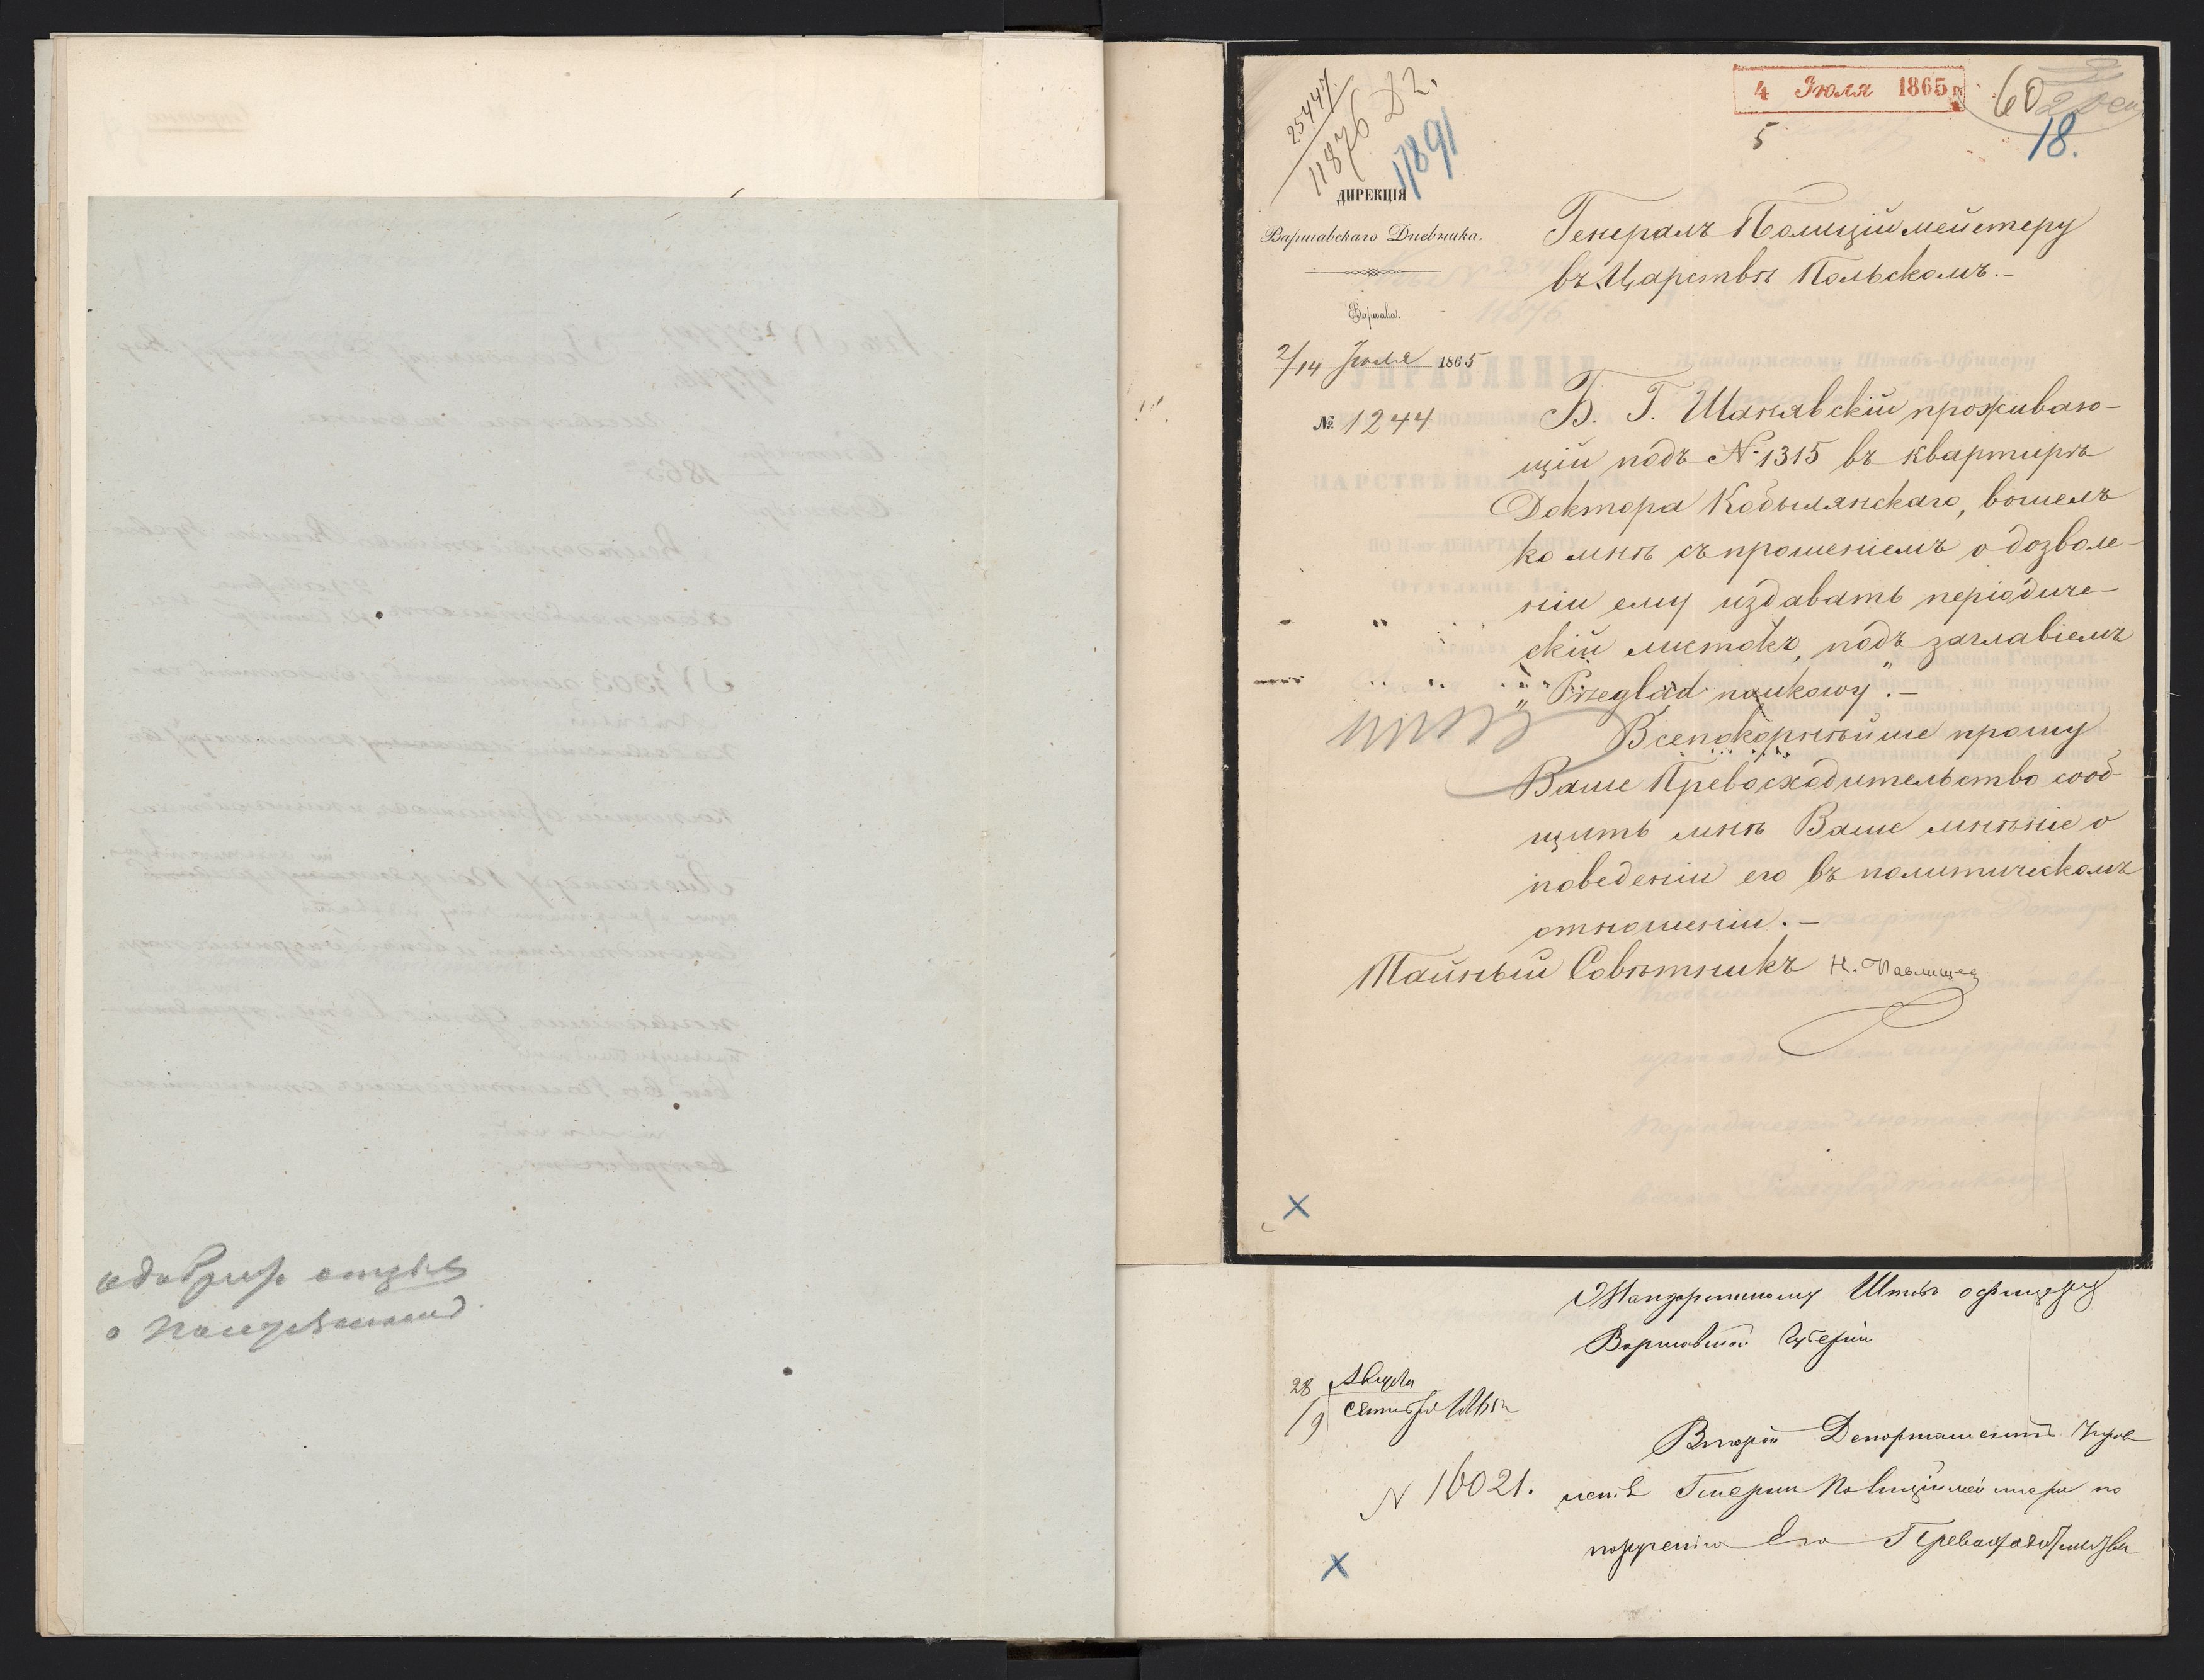 о
25447.
11876 Д2.
17891
4 Июля 1865 г.
5
60
18.
ДИРЕКЦІЯ
Варшавскаго Дневника.
Варшава.
2/14 Іюля 1865
№ 1244
Генералъ Полиціймейстеру
въ Царствѣ Польскомъ.-
Б. Г. Шанявскій проживаю-
щій подъ № 1315 въ квартирѣ
Доктора Кобылянскаго, вошелъ
ко мнѣ съ прошеніемъ о дозволе-
ніи ему издавать періодиче-
скій листокъ, подъ заглавіемъ
„Przegląd naukowy".-
Всепокорнѣйше прошу
Ваше Превосходительство сооб-
щить мнѣ Ваше мнѣніе о
поведеніи его въ политическомъ
отношеніи.-
Тайный Совѣтникъ Н. Павлищев
Жандармскому Штабъ офицеру
Варшавской Губерніи
28 Августа
/9 Сентября
N 16021.
Второй Департаментъ Управ
ленія Генералъ Полиціймейстера по
порученію Его Превосходительства